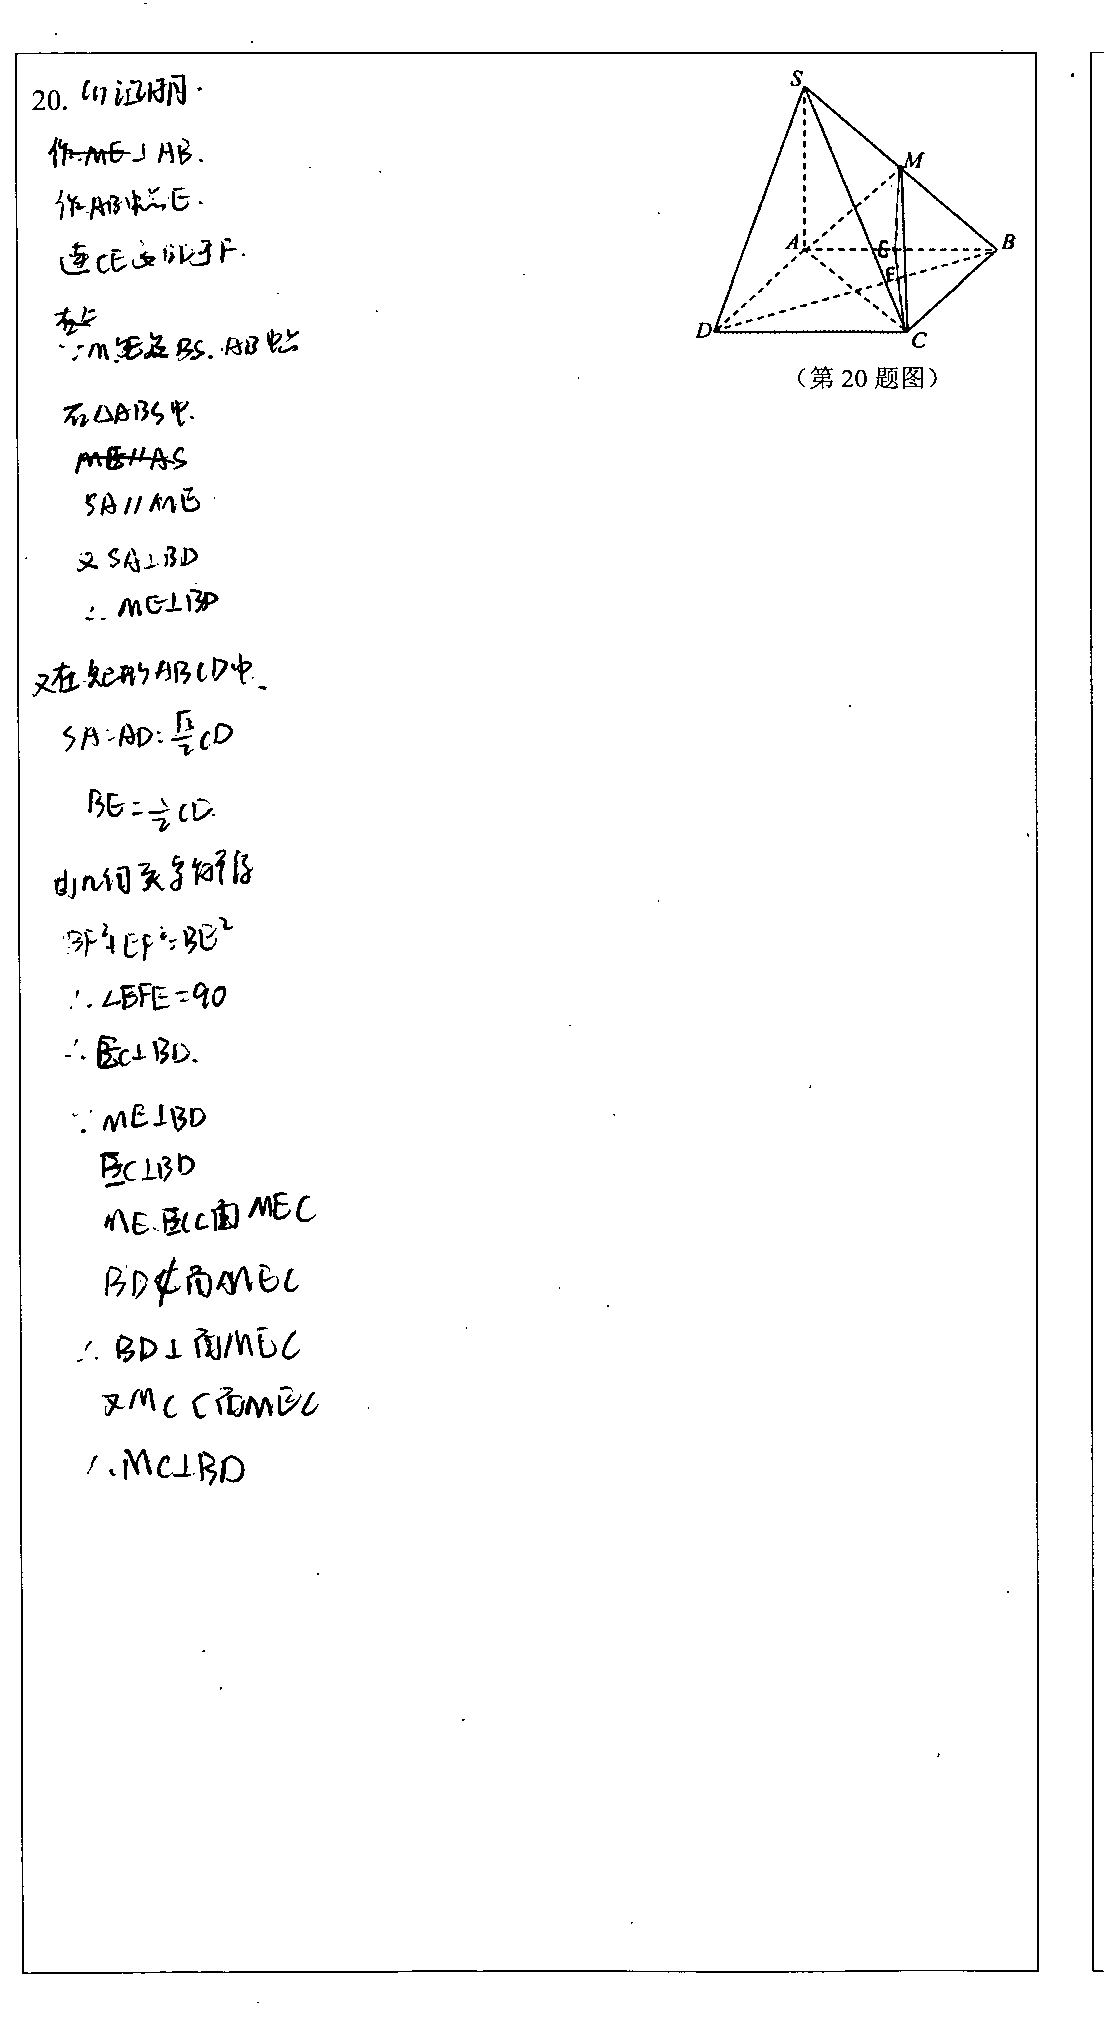 20. (1) 证明.
作ME⊥AB.
作AB中点E.
连CE交BD于F.
在
∵M.E是BS.AB中点
在△ABS中.
ME//AS
SA//ME
又SA⊥BD
∴ ME⊥BD
又在矩形ABCD中.
SA=AD=√2/2CD
BE=1/2CD.
由几何关系解得
BF²+EF²=BE²
∴∠BFE=90
∴EC⊥BD.
∵ME⊥BD
EC⊥BD
ME.EC⊂面MEC
BD⊄面MEC
∴BD⊥面MEC
又MC⊂面MEC
∴MC⊥BD
S
M
A
E
B
F
D
C
（第 20 题图）